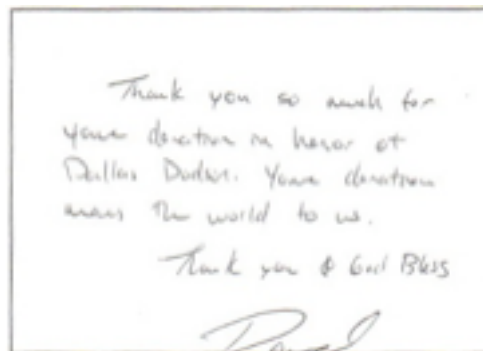 Thank you so much for
your donation in honor of
Dallas
Your donation
means the world to us.
Thank you & God Bless